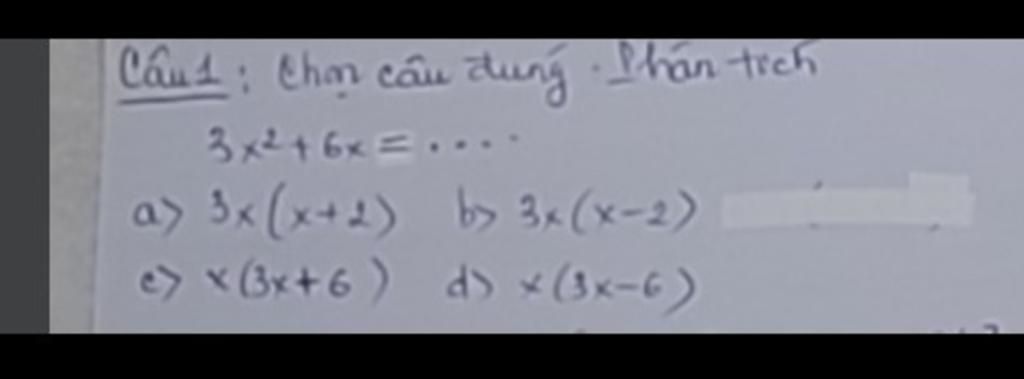 Câu 1: Chọn câu đúng. Phân tích
3x² + 6x = ....
a> 3x(x+2) b> 3x(x-2)
c> x(3x+6) d> x(3x-6)